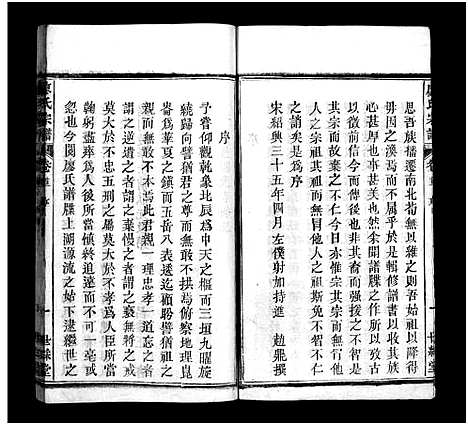 思吾族播遷南北苟無以維之則降得
毋因之渙焉而不屬乎於是輯修譜書以收其族
此其意甚盛也然余閱譜牒之作以攷古
其宗而故棄之不仁今日亦惟宗其實宗焉斯
人之宗祖其祖而他人之祖斯免不仁不智
之誚矣是爲序
宋紹興三十五年四月左僕射加特進 趙鼎撰
序
予嘗仰觀乾象北辰爲中天之樞而三垣九曜旋
繞歸向譬猶君之尊而無敢不拱焉俯察地理崑
崙爲華夏之鎮而五岳八表逶迤顧盼譬猶祖之
親而無敢不本焉此君親一理忠孝一道忘之者
謂之逆遺之者謂之棄慢之者謂之褻無將之戒
莫大於不忠五刑之屬莫大於不孝爲人臣所當
鞠躬盡瘁爲人後所當慎終追遠而不可一毫或
忽也今閱廖氏譜牒上溯源流之始下逮繼世之
廖氏宗譜
卷
序
一
世綵堂